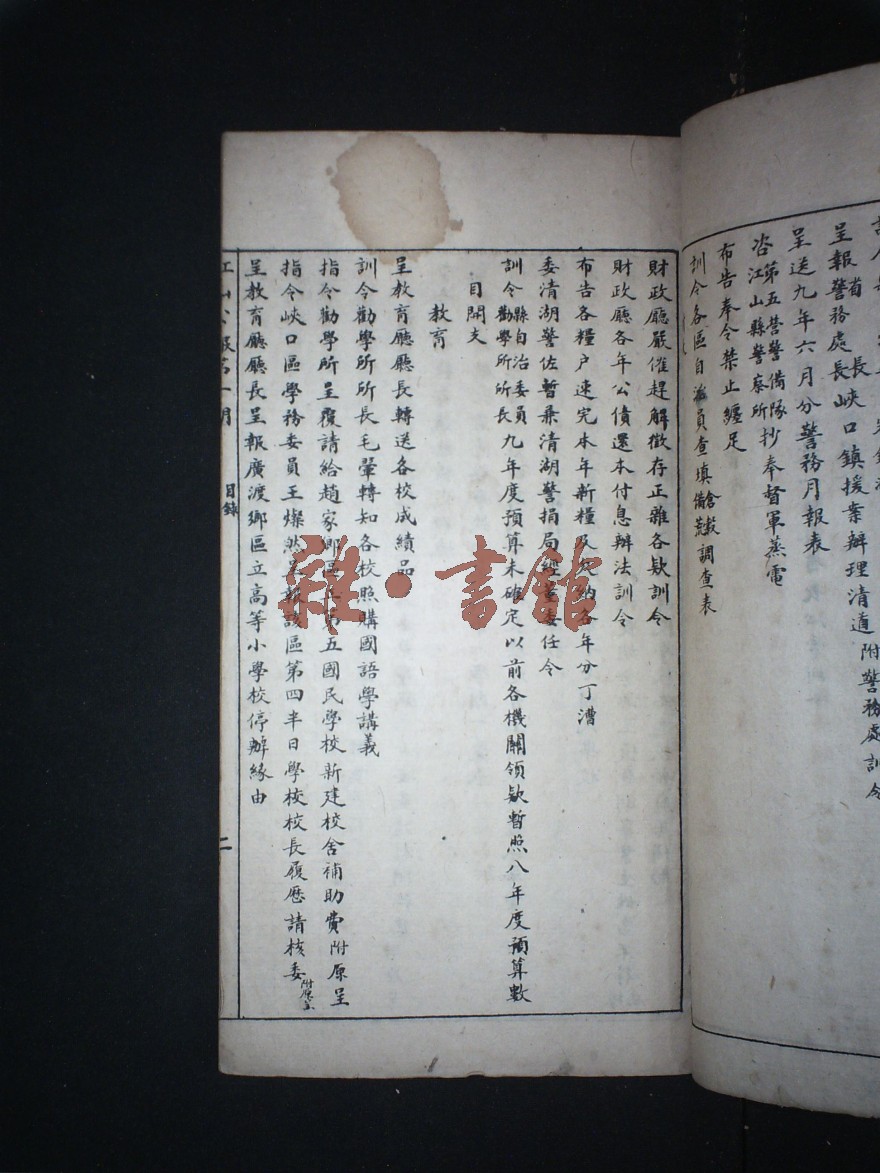 呈報警務處長峽口鎮援案辦理清道附警務處訓令
呈送九年六月分警務月報表
咨第五營警備隊江山縣警察所抄奉督軍蒸電
布告奉令禁止纏足
訓令各區自治員查填備荒倉穀調查表
財政廳嚴催趕解徵存正雜各欵訓令
財政廳各年公債還本付息辦法訓令
布告各糧户速完本年新糧及納各年分丁漕
委清湖警佐暫兼清湖警捐局委任令
訓令縣自治委員勸學所所長九年度預算未確定以前各機關領欵暫照八年度預算數
目開支
教育
呈教育廳廳長轉送各校成績品
訓令勸學所所長毛翚轉知各校照購國語學講義
指令勸學所呈覆請給趙家鄉區立第五國民學校新建校舍補助費附原呈
指令峽口區學務委員王燦然呈報該區第四半日學校校長履歷請核委附原呈
呈教育廳廳長呈報廣渡鄉區立高等小學校停辦緣由
目錄
二
雜·書館